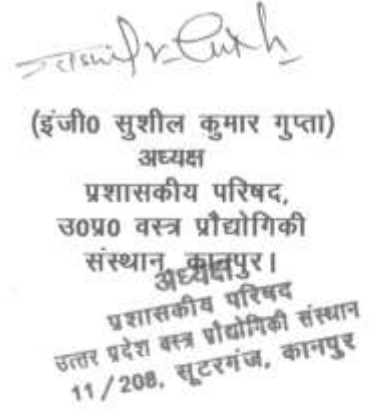 (इंजी0 सुशील कुमार गुप्ता)
अध्यक्ष
प्रशासकीय परिषद,
उ0प्र0 वस्त्र प्रौद्योगिकी
संस्थान, कानपुर।
अध्यक्ष
प्रशासकीय परिषद
उत्तर प्रदेश वस्त्र प्रौद्योगिकी संस्थान
11/208, सूटरगंज, कानपुर